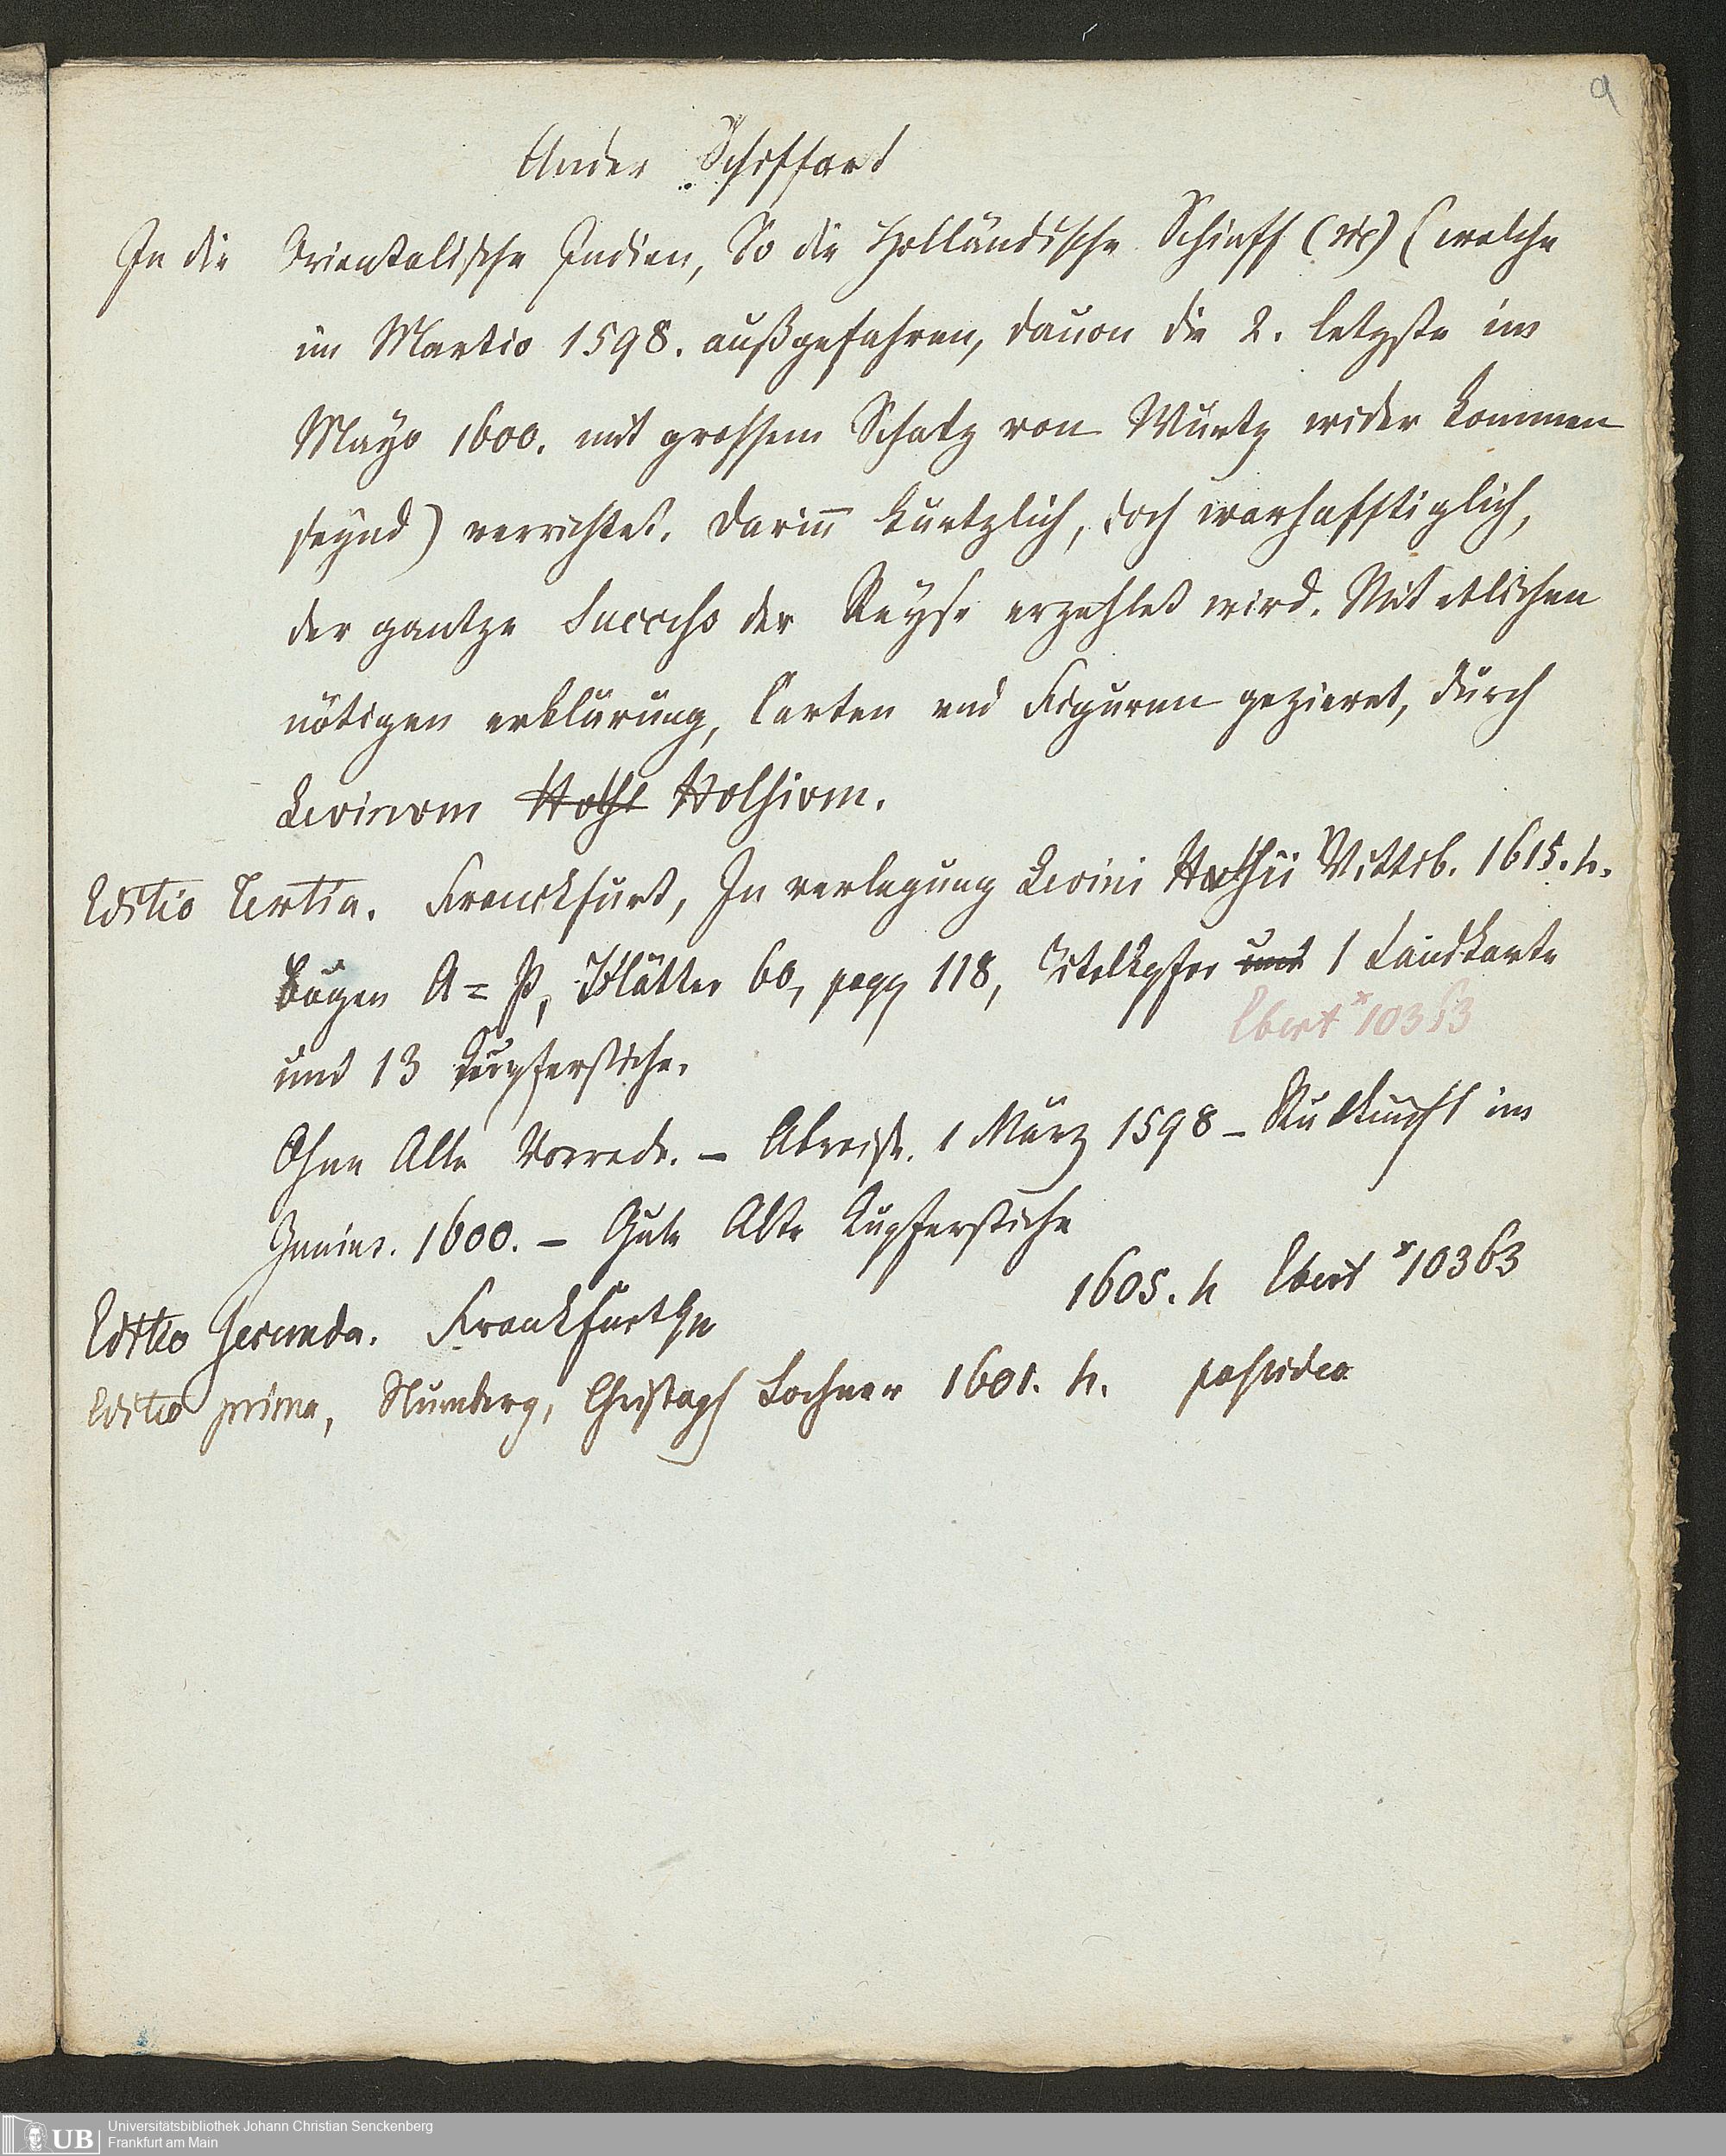 9
Ander Schiffart
In die Orientalische Indien, So die Holländische Schieff (sic) (welche
im Martio 1598. außgefahren, dauon die 2. letzste im
Mayo 1600. mit grossem Schatz von Würtz wider kommen
seynd) verrichtet. Darinn kürtzlich, doch warhafftiglich,
der gantze Successs der Reyse erzehlet wird. Mit etlichen
nötigen erklärung, Carten vnd Figuren gezieret, durch
Levinvm Hvlst Hvlsivm.
Editio Tertia. Franckfurt, In verlegung Levini Hvlsii Wittib. 1615. 4.
Bogen A = P, Blätter 60, pagg 118, Titelkpfer und 1 Landkarte
Ebert *10363
und 13 Kupferstiche.
Ohne Alle Vorrede. – Abreise. 1 März 1598 – Rückkunft im
Junius. 1600. – Gute Alte Kupferstiche
Editio Secunda. Frankfurth 1605. 4 Ebert *10363
Editio prima, Nürnberg, Christoph Lochner 1601. 4. possideo
UB Universitätsbibliothek Johann Christian Senckenberg
Frankfurt am Main